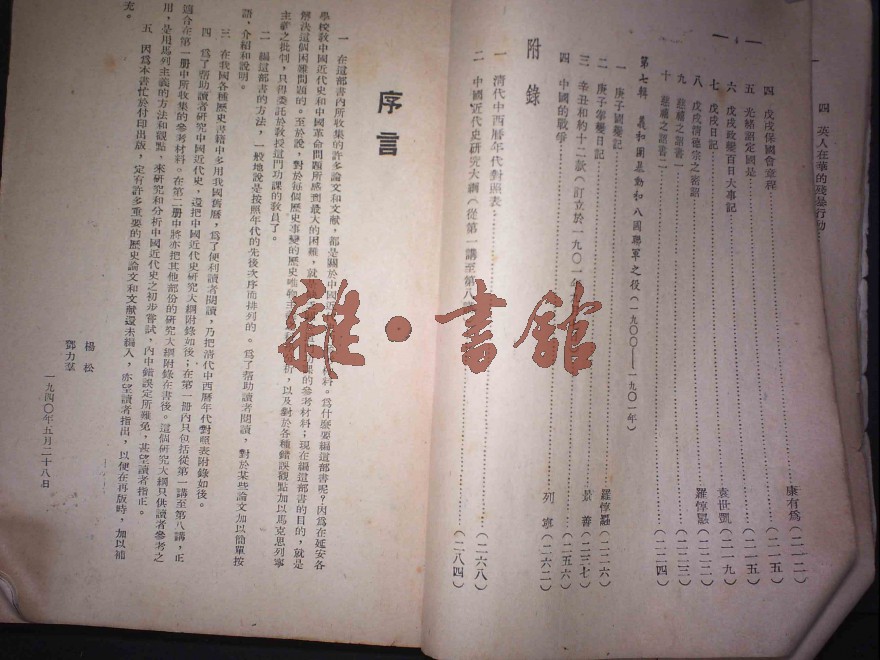 四 英人在華的殘暴行動
四 戊戌保國會章程 康有爲(二一二)
五 光緒諭定國是 (二一五)
六 戊戌政變百日大事記 (二一五)
七 戊戌日記 袁世凱(二一九)
八 戊戌清德宗之密詔 羅惇曧(二二二)
九 慈禧之詔書一 (二二三)
十 慈禧之詔書二 (二二四)
第七輯 義和團暴動和八國聯軍之役(一九〇〇——一九〇一年)
一 庚子國變記 羅惇曧(二二六)
二 庚子拳變日記 景善(二三七)
三 辛丑和約十二款(訂立於一九〇一年 (二五六)
四 中國的戰爭 列寧(二六二)
附錄
一 清代中西曆年代對照表 (二六八)
二 中國近代史研究大綱(從第一講至第八 (二八四)
序言
一 在這部書內所收集的許多論文和文獻,都是關於中國近 料。爲什麼要編這部書呢?因爲在延安各
學校教中國近代史和中國革命問題所感到最大的困難,就 功課的參考材料;現在編這部書的目的,就是
解決這個困難問題的。至於說,對於每個歷史事變的歷史唯物主 析,以及對於各種錯誤觀點加以馬克思列寧
主義之批判,只得委託於教授這門功課的教員了。
二 編這部書的方法,一般地說是按照年代的先後次序而排列的。爲了幫助讀者閱讀,對於某些論文加以簡單按
語,介紹和說明。
三 在我國各種歷史書籍中多用我國舊曆,爲了便利讀者閱讀,乃把清代中西曆年代對照表附錄如後。
四 爲了幫助讀者研究中國近代史,還把中國近代史研究大綱附錄如後;在第一册內只包括從第一講至第八講,正
適合在第一册中所收集的參考材料。在第二册中將亦把其他部份的研究大綱附錄在書後。這個研究大綱只供讀者參考之
用,是用馬列主義的方法和觀點,來研究和分析中國近代史之初步嘗試,內中錯誤定所難免,甚望讀者指正。
五 因爲本書忙於付印出版,定有許多重要的歷史論文和文獻還未編入,亦望讀者指出,以便在再版時,加以補
充。
楊松
鄧力羣
一九四〇年五月二十八日
雜·書館